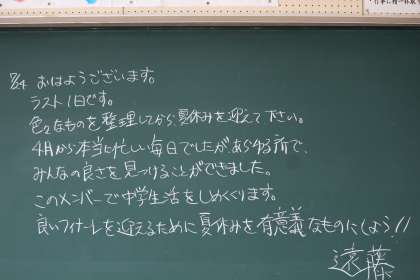 7/24 おはようございます。
ラスト1日です。
色々なものを整理してから、夏休みを迎えて下さい。
4月から本当に忙しい毎日でしたがあらゆる所で、
みんなの良さを見つけることができました。
このメンバーで中学生活をしめくくります。
良いフィナーレを迎えるために夏休みを有意義なものにしよう!!
遠藤